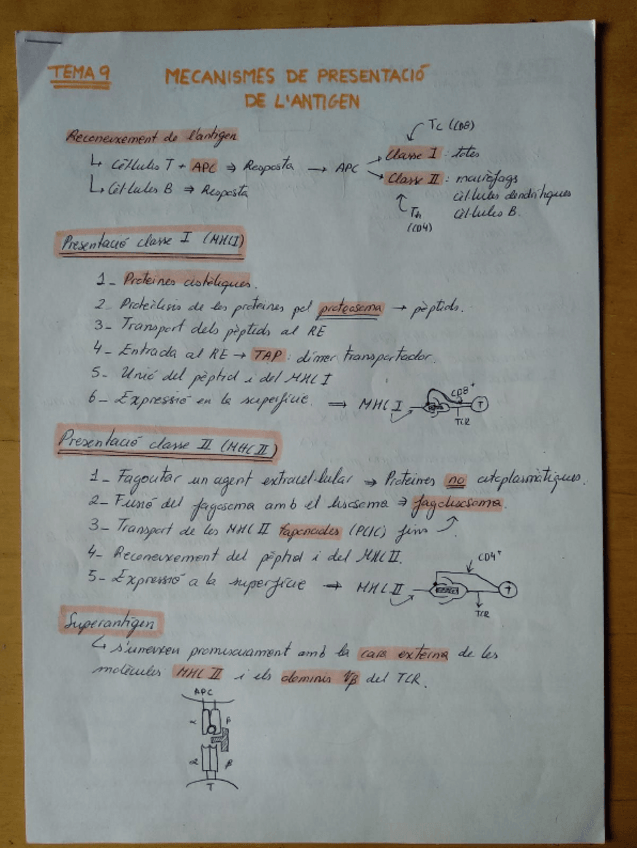 TEMA 9
MECANISMES DE PRESENTACIÓ
DE L'ANTIGEN
Reconeixement de l'antigen
↳ Cèl·lules T + APC ⇒ Resposta → APC
↳ Cèl·lules B ⇒ Resposta
Tc (CD8)
Classe I : totes
Classe II : macròfags
cèl·lules dendrítiques
cèl·lules B.
Th
(CD4)
Presentació classe I (MHC I)
1_ Proteïnes citòliques.
2_ Proteòlisis de les proteïnes pel proteosoma → pèptids.
3_ Transport dels pèptids al RE
4_ Entrada al RE → TAP : dímer transportador.
5_ Unió del pèptid i del MHC I
6_ Expressió en la superfície. → MHC I
CD8+
T
TCR
Presentació classe II (MHC II)
1_ Fagocitar un agent extracel·lular → Proteïnes no citoplasmàtiques.
2_ Fusió del fagosoma amb el lisosoma ⇒ fagolisosoma.
3_ Transport de les MHC II taponades (PLIC) fins
4_ Reconeixement del pèptid i del MHC II.
5_ Expressió a la superfície → MHC II
CD4+
T
TCR
Superantigen
↳ s'uneixen promiscuament amb la cara externa de les
molècules MHC II i els dominis Vβ del TCR.
APC
α β
α β
T